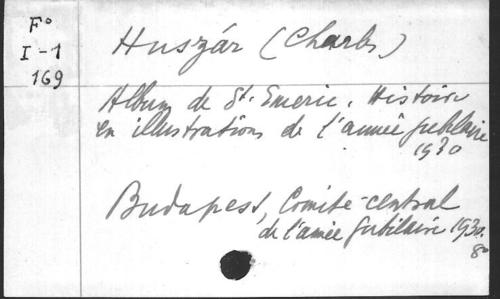 F°
I-1
169
Huszár (Charles)
Album de St. Emeric. Histoire
en illustrations de l'année jubilaire
1930
Budapest, Comité-central
de l'année jubilaire 1930.
8°